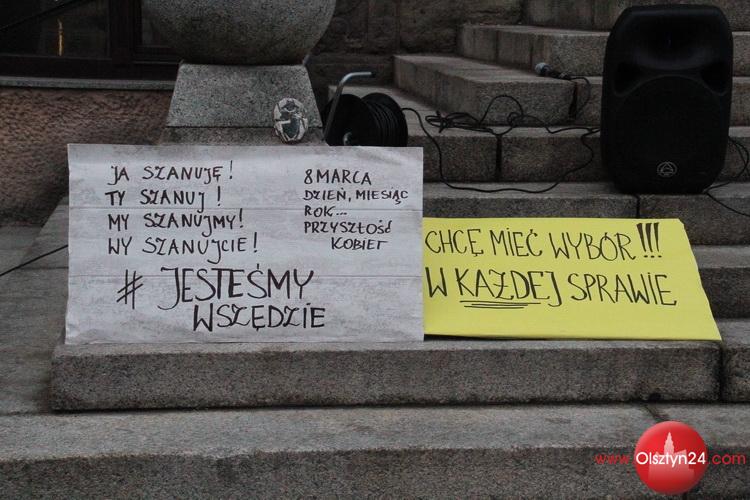 JA SZANUJĘ!
TY SZANUJ!
MY SZANUJMY!
WY SZANUJCIE!
# JESTEŚMY
WSZĘDZIE
8 MARCA
DZIEŃ, MIESIĄC
ROK...
PRZYSZŁOŚĆ
KOBIET
CHCĘ MIEĆ WYBÓR!!!
W KAŻDEJ SPRAWIE
www.Olsztyn24.com